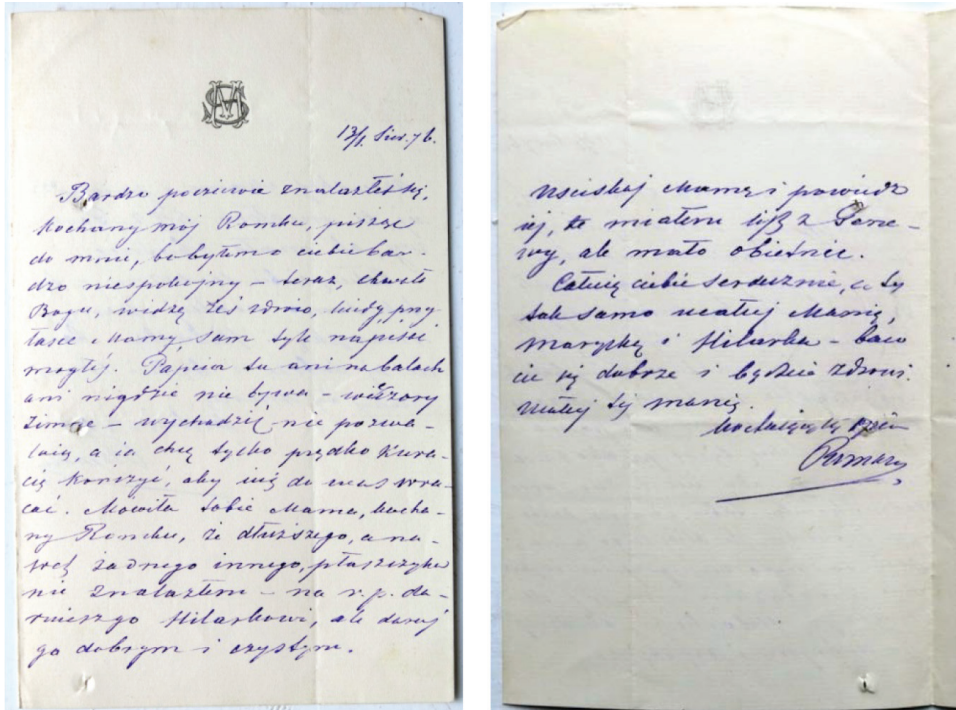 Bardzo poczciwie znalazłeś się,
Kochany mój Romku, pisząc
do mnie, bo byłem o ciebie bar-
dzo niespokojny – teraz, chwała
Bogu, widzę żeś zdrów, kiedy przy
łasce Mamy, sam tyle napisać
mogłeś. Papcio tu ani na balach
ani nigdzie nie bywa – wieczory
zimne – wychodzić nie pozwa-
lają, a ja chcę tylko prędko kura-
cję kończyć, aby już do was wra-
cać. Mówiła tobie Mama, kocha-
ny Romku, że dłuższego, a na-
wet żadnego innego, płaszczyka
nie znalazłem – na r. p. da-
rujesz go Hilarkowi, ale daruj
go dobrym i czystym.
Uściskaj Mamę i powiedz
jej, że miałem list z Gene-
wy, ale mało obietnic.
Całuję ciebie serdecznie, a ty
tak samo ucałuj Manię,
Maryskę i Hilarka – baw
cie się dobrze i bądźcie zdrowi.
Kochający cię